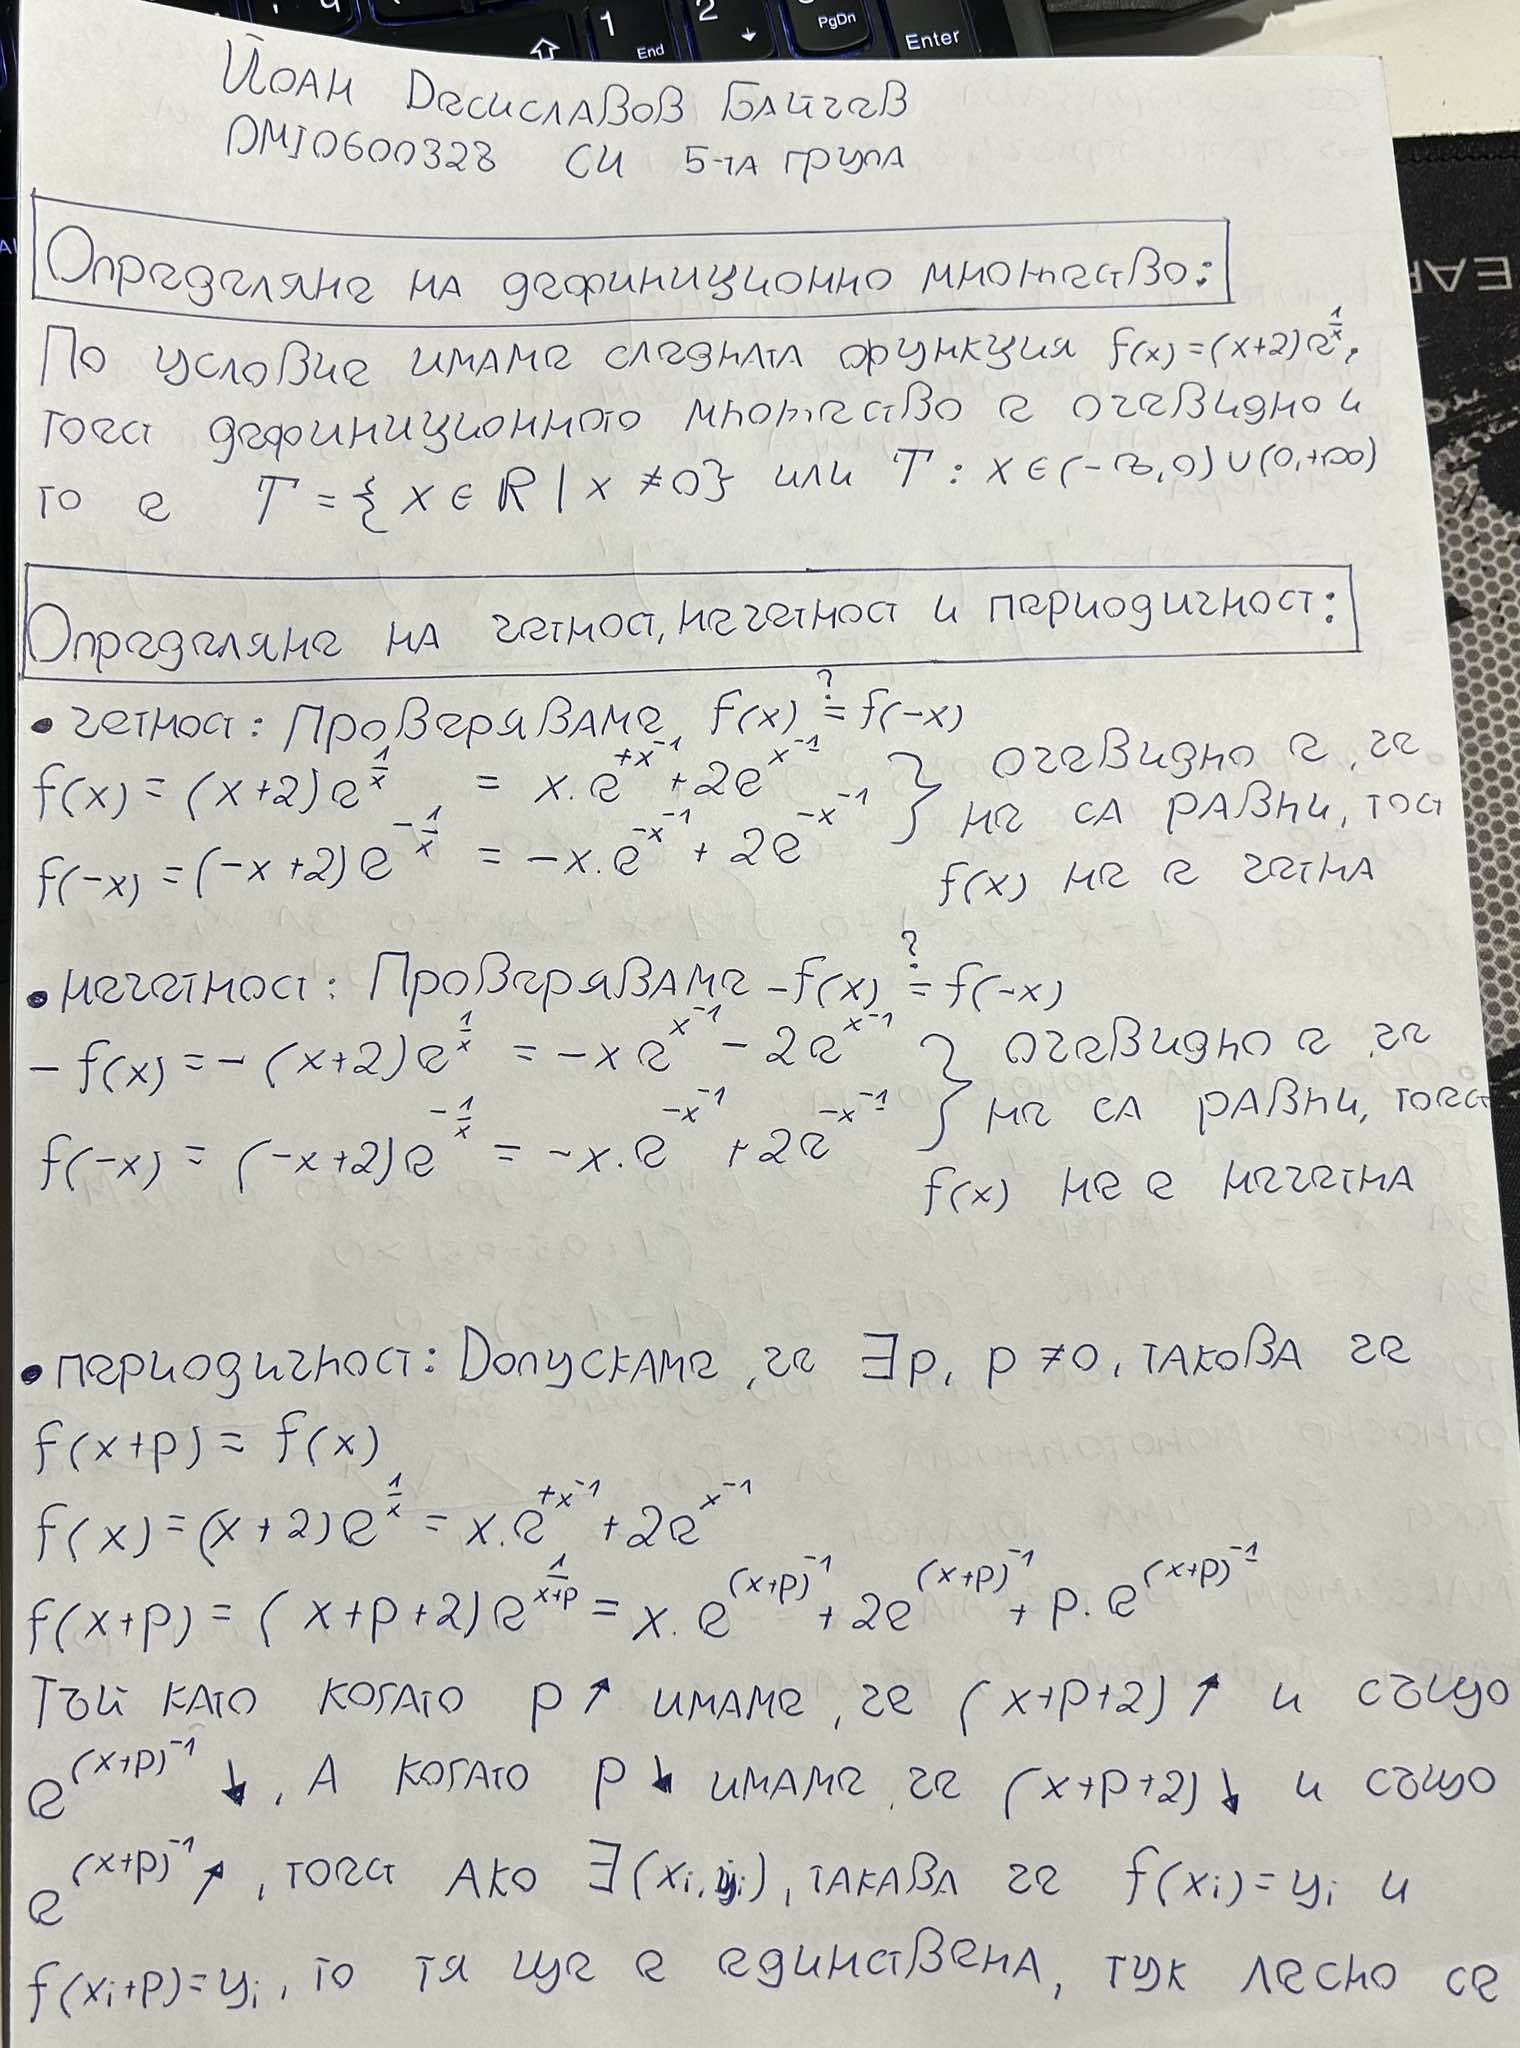 1
End
2
PgDn
Enter
Йоан Десиславов Байчев
0MI0600328 СИ 5-та група
Определяне на дефиниционно множество:
По условие имаме следната функция f(x) = (x+2)e^{1/x},
тогст дефиниционното множество е очевидно и
то е T = {x ∈ ℝ | x ≠ 0} или T : x ∈ (-∞, 0) ∪ (0, +∞)
Определяне на четност, нечетност и периодичност:
• четност: Проверяваме f(x) ?= f(-x)
f(x) = (x+2)e^{1/x} = x.e^{+x^{-1}} + 2e^{x^{-1}} } очевидно е, че
f(-x) = (-x+2)e^{-1/x} = -x.e^{-x^{-1}} + 2e^{-x^{-1}} не са равни, тогст
f(x) не е четна
• нечетност: Проверяваме -f(x) ?= f(-x)
-f(x) = -(x+2)e^{1/x} = -xe^{x^{-1}} - 2e^{x^{-1}} } очевидно е, че
f(-x) = (-x+2)e^{-1/x} = -x.e^{-x^{-1}} + 2e^{-x^{-1}} не са равни, тогст
f(x) не е нечетна
• периодичност: Допускаме, че ∃p, p ≠ 0, такова че
f(x+p) = f(x)
f(x) = (x+2)e^{1/x} = x.e^{+x^{-1}} + 2e^{x^{-1}}
f(x+p) = (x+p+2)e^{1/(x+p)} = x.e^{(x+p)^{-1}} + 2e^{(x+p)^{-1}} + p.e^{(x+p)^{-1}}
Тъй като когато p↑ имаме, че (x+p+2)↑ и също
e^{(x+p)^{-1}}↓, а когато p↓ имаме, че (x+p+2)↓ и също
e^{(x+p)^{-1}}↑, тогст ако ∃(xᵢ, yᵢ), такава че f(xᵢ) = yᵢ и
f(xᵢ+p) = yᵢ, то тя ще е единствена, тук лесно се